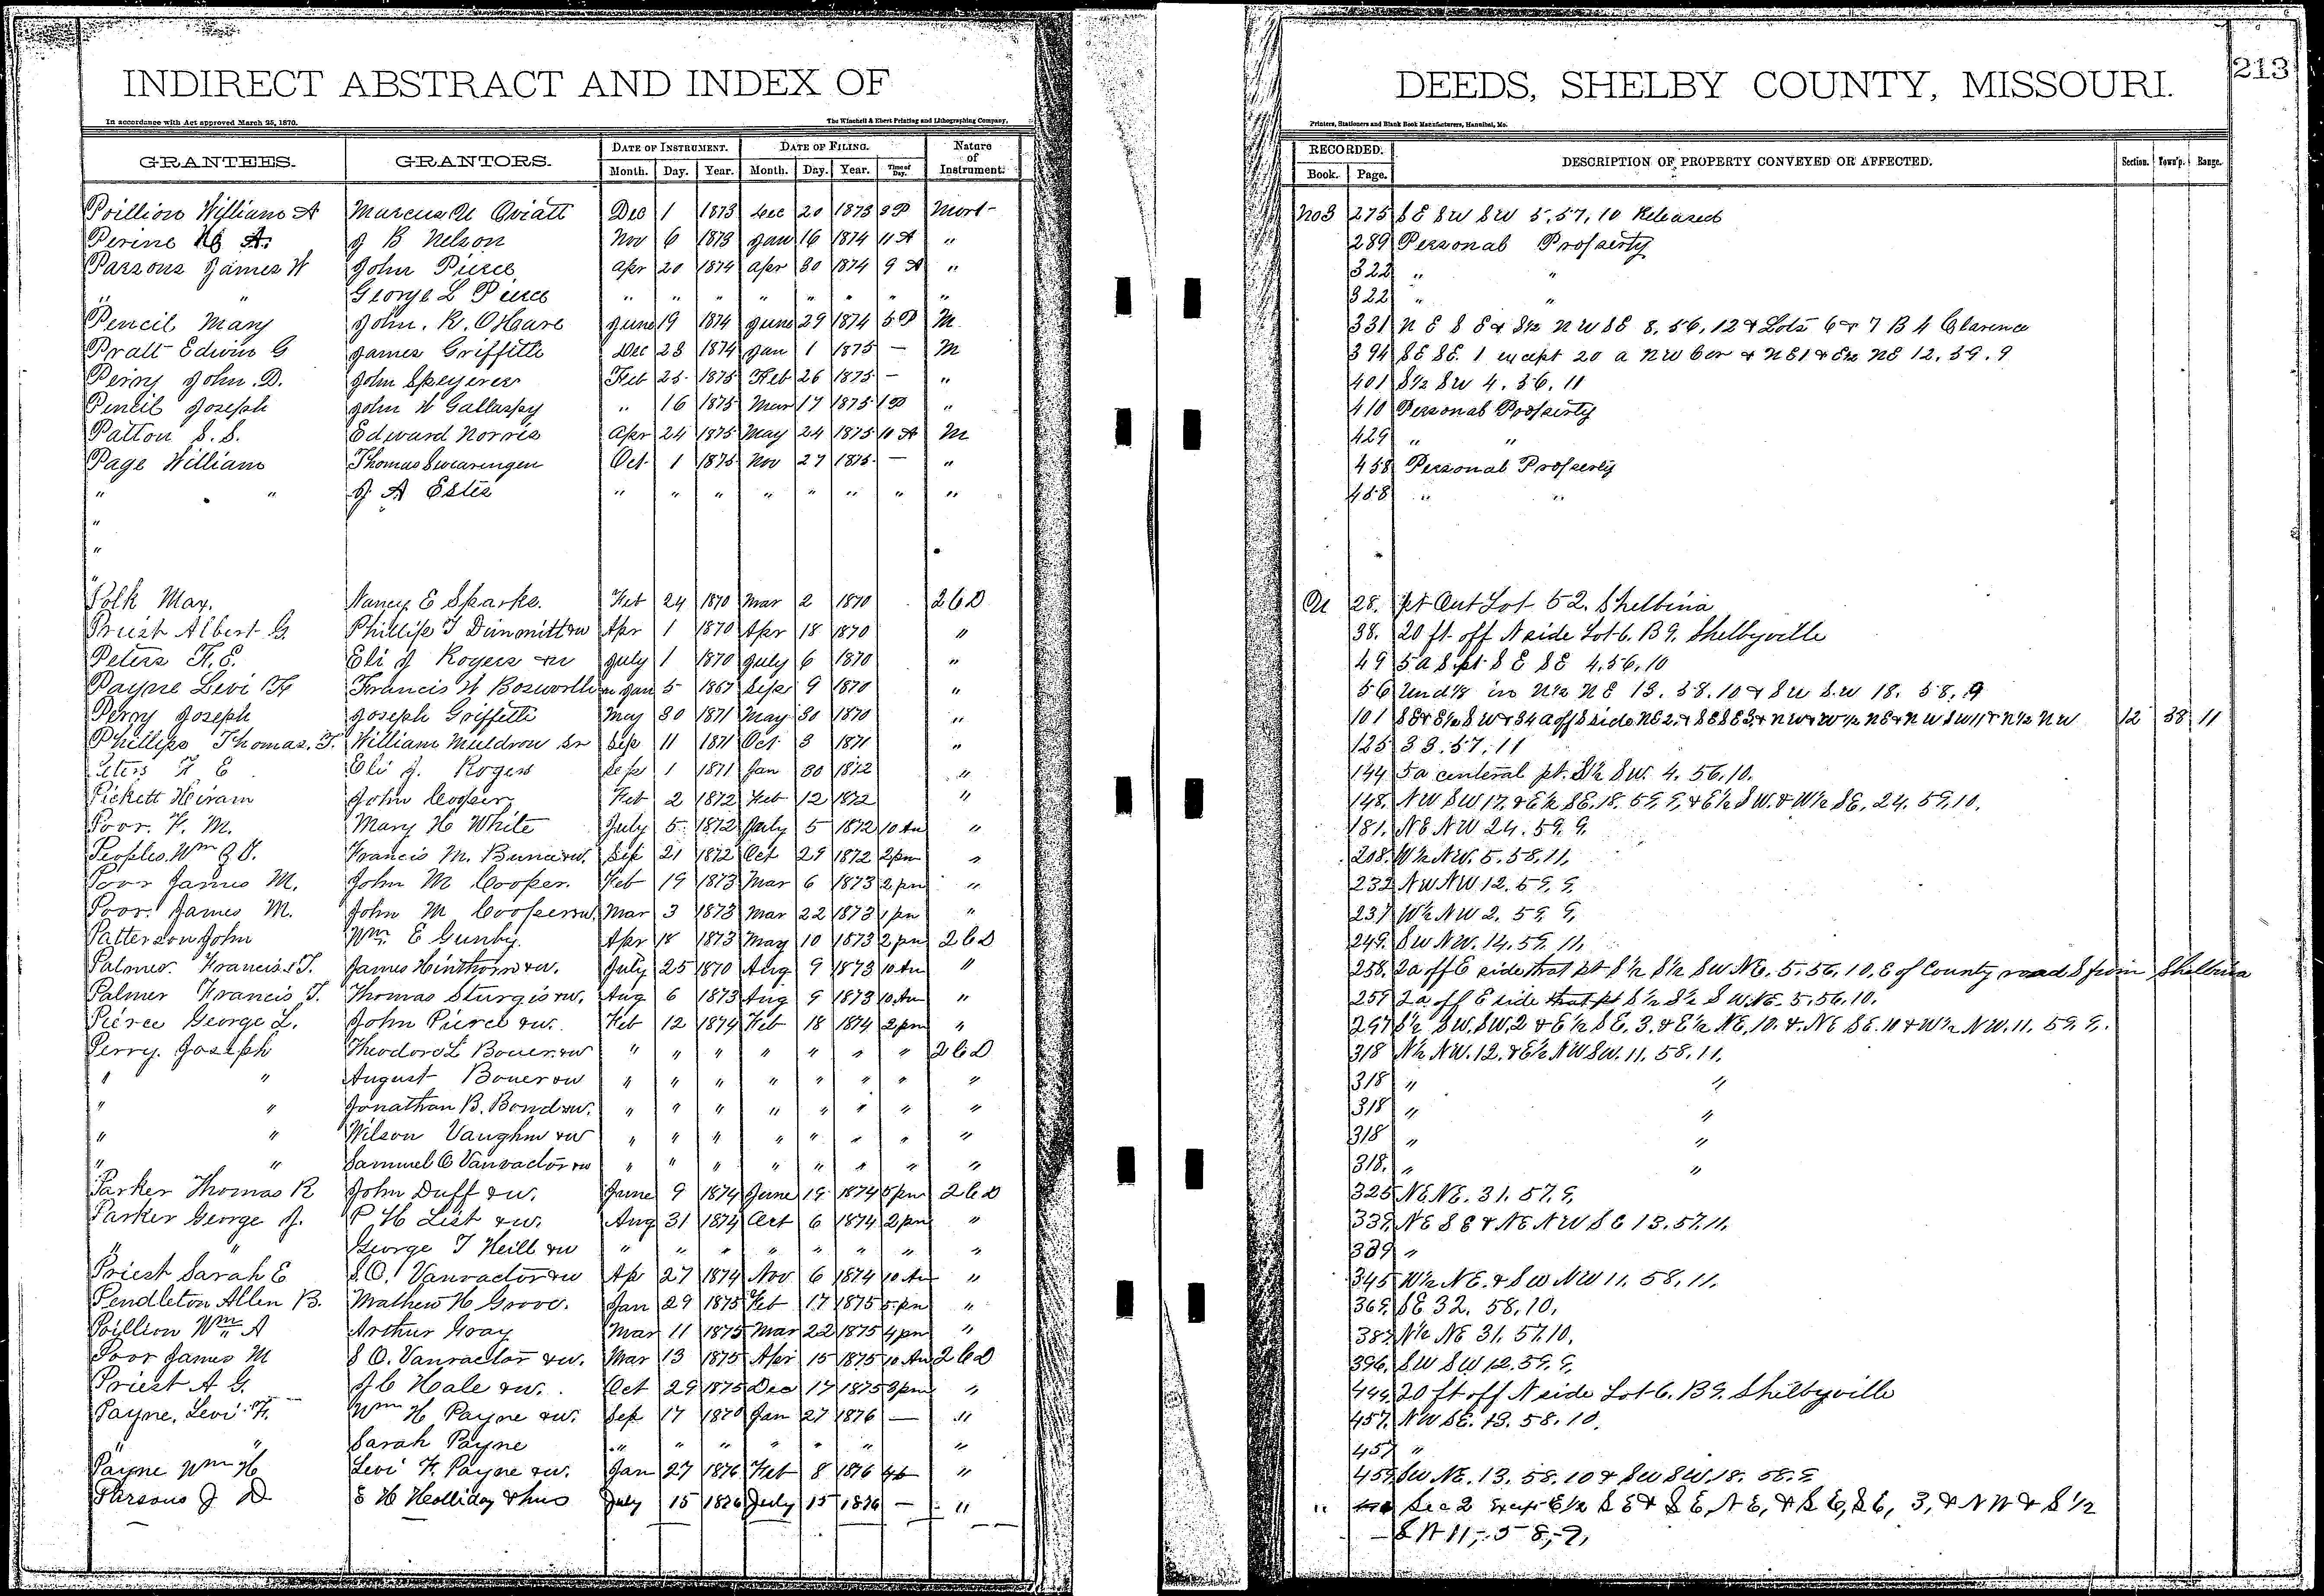 INDIRECT ABSTRACT AND INDEX OF DEEDS, SHELBY COUNTY, MISSOURI. 213
In accordance with Act approved March 25, 1870. The Winchell & Ebert Printing and Lithographing Company, Printers, Stationers and Blank Book Manufacturers, Hannibal, Mo.
GRANTEES. GRANTORS. DATE OF INSTRUMENT. DATE OF FILING. Nature of Instrument. RECORDED. DESCRIPTION OF PROPERTY CONVEYED OR AFFECTED. Section. Town'p. Range.
Month. Day. Year. Month. Day. Year. Time of Day. Book. Page.
Poillion William A Marcus Oviatt Dec 1 1873 Dec 20 1873 3 P Mort- No 3 275 S E SW SW 5, 57, 10 Released
Perine A. J B Nelson Nov 6 1873 Jan 16 1874 11 A " 289 Personal Property
Parsons James W John Pierce Apr 20 1874 Apr 30 1874 9 A " 322 " "
" " George L Pierce " " " " " " " " 322 " "
Pencil Mary John. R. OHare June 19 1874 June 29 1874 5 P M 331 N E S E & S½ N W SE 8, 56, 12 & Lots 6 & 7 B 4 Clarence
Pratt Edwin G James Griffith Dec 23 1874 Jan 1 1875 — M 394 SE SE. 1 except 20 a NW Cor & NE 1 & E½ NE 12. 59. 9
Perry John. D. John Speyerer Feb 25 1875 Feb 26 1875 — " 401 S½ SW 4. 56. 11
Pencil Joseph John W Gallaspy " 16 1875 Mar 17 1875 1 P " 410 Personal Property
Patton S. S. Edward Norris Apr 24 1875 May 24 1875 10 A M 429 " "
Page William Thomas Swearingen Oct. 1 1875 Nov 27 1875 — " 458 Personal Property
" " J. A Estes " " " " " " " " 458 " "
"
"
"
Polk May. Nancy E Sparks. Feb 24 1870 Mar 2 1870 26D 28. pt Out Lot 52. Shelbina
Priest Albert G. Phillip T Dimmitt &w Apr 1 1870 Apr 18 1870 " 38. 20 ft off N side Lot 6. B 9. Shelbyville
Peters F. E. Eli J Rogers &w July 1 1870 July 6 1870 " 49 5 a S pt S E SE 4, 56, 10
Payne Levi F Francis W Bosworth Jan 5 1867 Sept 9 1870 " 56 Und ⅓ in N½ NE 13. 58. 10 & SW S.W 18. 58. 9
Perry Joseph Joseph Griffith May 30 1871 May 30 1870 " 101 SE & E½ SW & 34 a off S side NE 2, & SE SE 3 & NW & W½ NE & NW SW 11 & N½ NW 12 58 11
Phillips Thomas. T. William Muldrow Sr Sep 11 1871 Oct. 3 1871 " 125 33. 57. 11
Peters F E Eli J. Rogers Sept 1 1871 Jan 30 1872 " 144 5 a centeral pt. S½ SW. 4. 56, 10.
Pickett Hiram John Cooper Feb 2 1872 Feb 12 1872 " 148. NW SW 17. & E½ SE. 18. 59. 9. & E½ SW. & W½ SE. 24. 59, 10.
Poor. F. M. Mary H White July 5 1872 July 5 1872 10 Am " 181. NE NW 24. 59. 9.
Peoples. Wm Francis M. &w. Sep 21 1872 Oct 29 1872 2 pm " 208. W½ NW. 5. 58. 11,
Poor James M. John M Cooper. Feb 19 1873 Mar 6 1873 2 pm " 232 NW NW. 12. 59. 9.
Poor. James M. John M Cooper &w. Mar 3 1873 Mar 22 1873 1 pm " 237 W½ NW 2, 59. 9,
Patterson John Wm. E Gunby. Apr 18 1873 May 10 1873 2 pm 26D 249. SW NW. 14. 59. 11,
Palmer. Francis. T. James Hinthorn &w. July 25 1870 Aug 9 1873 10 Am " 258. 2a off E side that pt S½ S½ SW NE. 5. 56, 10, E of County road S from Shelbina
Palmer Francis. T. Thomas Sturgis &w. Aug 6 1873 Aug 9 1873 10 Am " 259 2a off E side that pt S½ S½ SW. NE. 5. 56, 10.
Pierce George L. John Pierce &w. Feb 12 1874 Feb 18 1874 2 pm " 297 S½ SW, SW, 2 & E½ SE, 3. & E½ NE, 10. & NE SE. 10 & W½ NW. 11. 59. 9.
Perry. Joseph Theodore L Bouer &w " " " " " " " 26D 318 N½ NW. 12. & E½ NW SW. 11. 58. 11,
" " August Bouer &w " " " " " " " " 318 " "
" " Jonathan B. Bond &w. " " " " " " " " 318 " "
" " Wilson Vaughn &w " " " " " " " " 318 " "
" " Samuel O Vanvactor &w " " " " " " " " 318. " "
Parker Thomas R John Duff &w. June 9 1874 June 19 1874 5 pm 26D 325 NE NE. 31. 57. 9,
Parker George J. P H List &w. Aug 31 1874 Oct 6 1874 2 pm " 339. NE SE & NE NW SE 13. 57. 11,
" " George T Neill &w " " " " " " " " 339 "
Priest Sarah E S. O. Vanvactor &w Ap 27 1874 Nov 6 1874 10 Am " 345 W½ NE. & SW NW 11. 58, 11,
Pendleton Allen B. Mathew H Groov. Jan 29 1875 Feb 17 1875 5 pm " 369. SE 32. 58, 10,
Poillion Wm A Arthur Gray Mar 11 1875 Mar 22 1875 4 pm " 387. N½ NE 31. 57. 10.
Poor James M S O. Vanvactor &w. Mar 13 1875 Apr 15 1875 10 Am 26D 396. SW SW 12. 59. 9,
Priest A G. J C Hale &w. Oct 29 1875 Dec 17 1875 3 pm " 444. 20 ft off N side Lot 6. B 9. Shelbyville
Payne, Levi F. Wm H Payne &w. Sep 17 1870 Jan 27 1876 — " 457. NW SE. 13. 58. 10.
" " Sarah Payne " " " " " " " 457 "
Payne Wm H Levi F. Payne &w. Jan 27 1876 Feb 8 1876 " 459. SW NE. 13. 58. 10 & SW SW. 18. 58. 9
Parsons J D S H Holliday & hus July 15 1876 July 15 1876 — " " Sec 2 Except E½ SE & SE, NE, & SE, SE, 3, & NW & S½
SW 11, 58, 9,